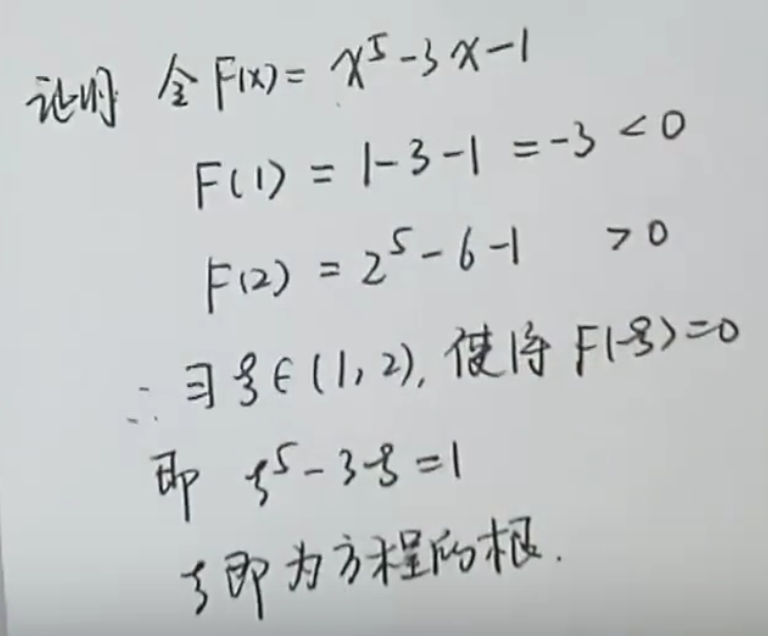 证明 令 F(x) = x⁵ - 3x - 1
F(1) = 1 - 3 - 1 = -3 < 0
F(2) = 2⁵ - 6 - 1 > 0
∴ ∃ ξ ∈ (1, 2), 使得 F(ξ) = 0
即 ξ⁵ - 3ξ = 1
ξ即为方程的根.